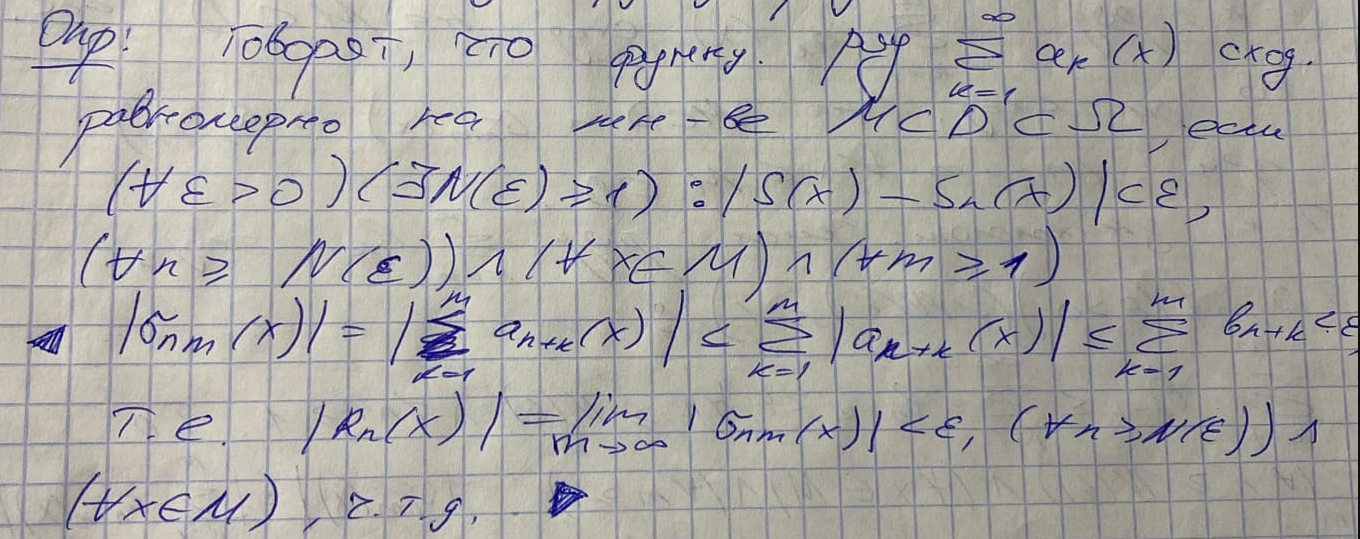 Опр: Говорят, что функц. ряд ∑_{k=1}^{∞} aₖ(x) сход.
равномерно на мн-ве M⊂D⊂Ω, если
(∀ε>0)(∃N(ε)≥1):|S(x)-Sₙ(x)|<ε,
(∀n≥N(ε))∧(∀x∈M)∧(∀m≥1)
◀ |σₙₘ(x)|=|∑_{k=1}^{m} aₙ₊ₖ(x)|≤∑_{k=1}^{m}|aₙ₊ₖ(x)|≤∑_{k=1}^{m} bₙ₊ₖ<ε,
т.е. |Rₙ(x)|=lim_{m→∞}|σₙₘ(x)|<ε, (∀n≥N(ε))∧
(∀x∈M), ч.т.д. ▶